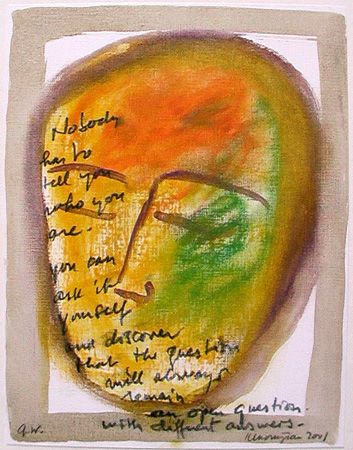 Nobody
has to
tell you
who you
are.
you can
ask it
yourself
and discover
that the question
will always
remain
an open question.
with different answers.
G.W.
2001